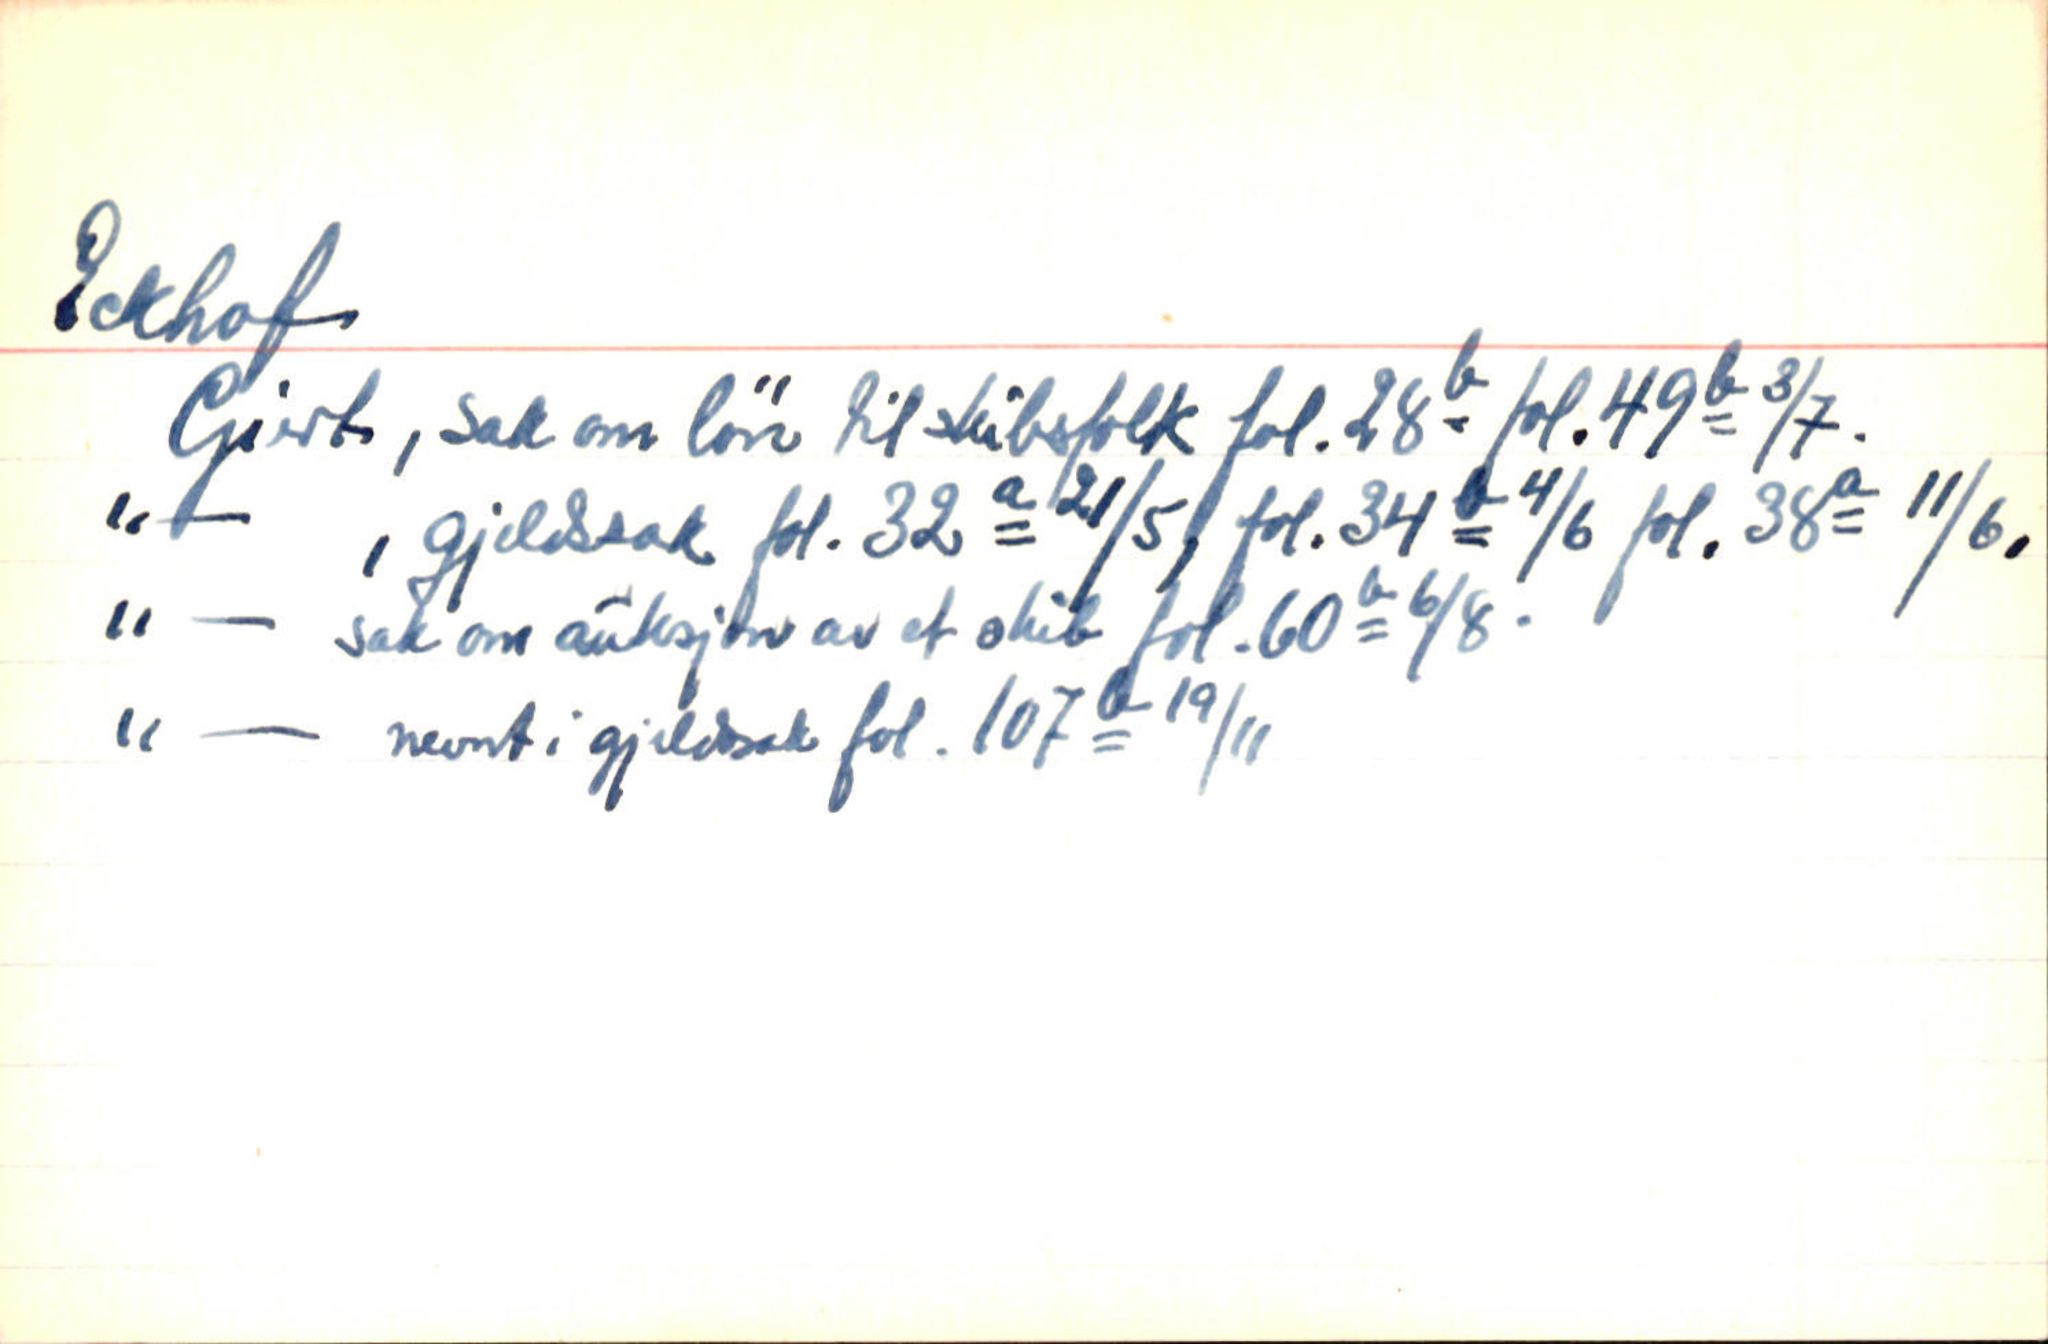 Eckhof
Giert, sak om lön til skibsfolk fol. 28b fol. 49b 3/7.
" — , gjeldssak fol. 32a 21/5, fol. 34b 4/6 fol. 38a 11/6.
" — sak om auksjon av et skib fol. 60b 6/8.
" — nevnt i gjeldssak fol. 107b 19/11